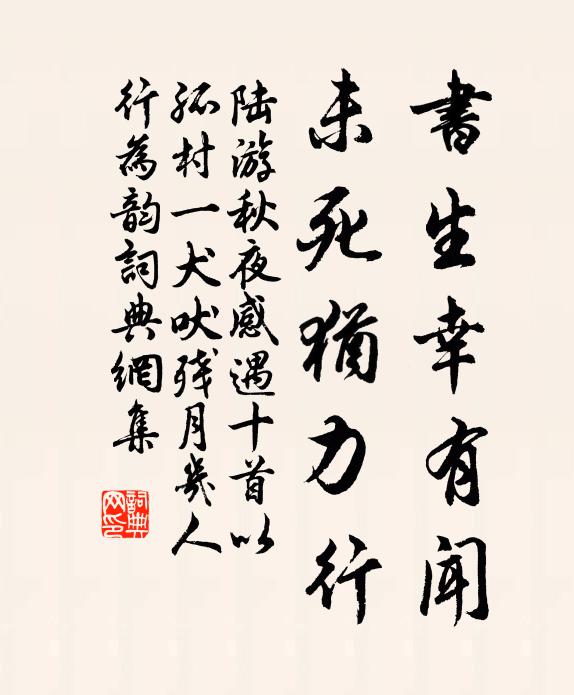 書生幸有聞
未死猶力行
陆游秋夜感遇十首以
孤村一犬吠残月幾人
行為韵詞典網集
詞典网印